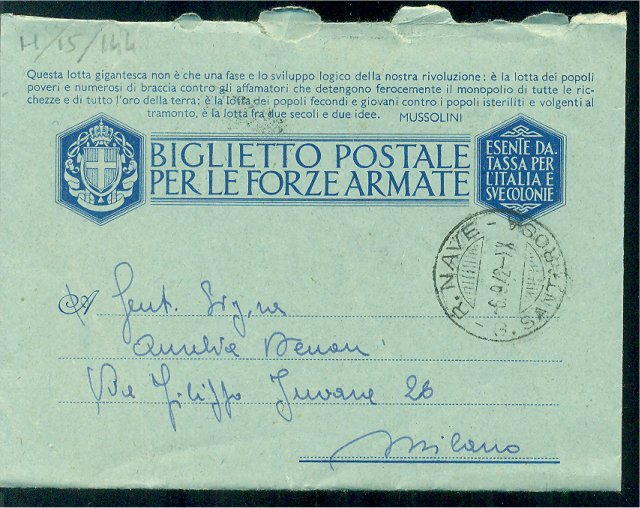 H/15/144
Questa lotta gigantesca non è che una fase e lo sviluppo logico della nostra rivoluzione: è la lotta dei popoli
poveri e numerosi di braccia contro gli affamatori che detengono ferocemente il monopolio di tutte le ric-
chezze e di tutto l'oro della terra; è la lotta dei popoli fecondi e giovani contro i popoli isteriliti e volgenti al
tramonto, è la lotta fra due secoli e due idee. MUSSOLINI
BIGLIETTO POSTALE
PER LE FORZE ARMATE
ESENTE DA
TASSA PER
L'ITALIA E
SVE COLONIE
R. NAVE
S. SANTAROSA
A Gent. Sig.na
Aurelia
Via Filippo Juvara 26
Milano